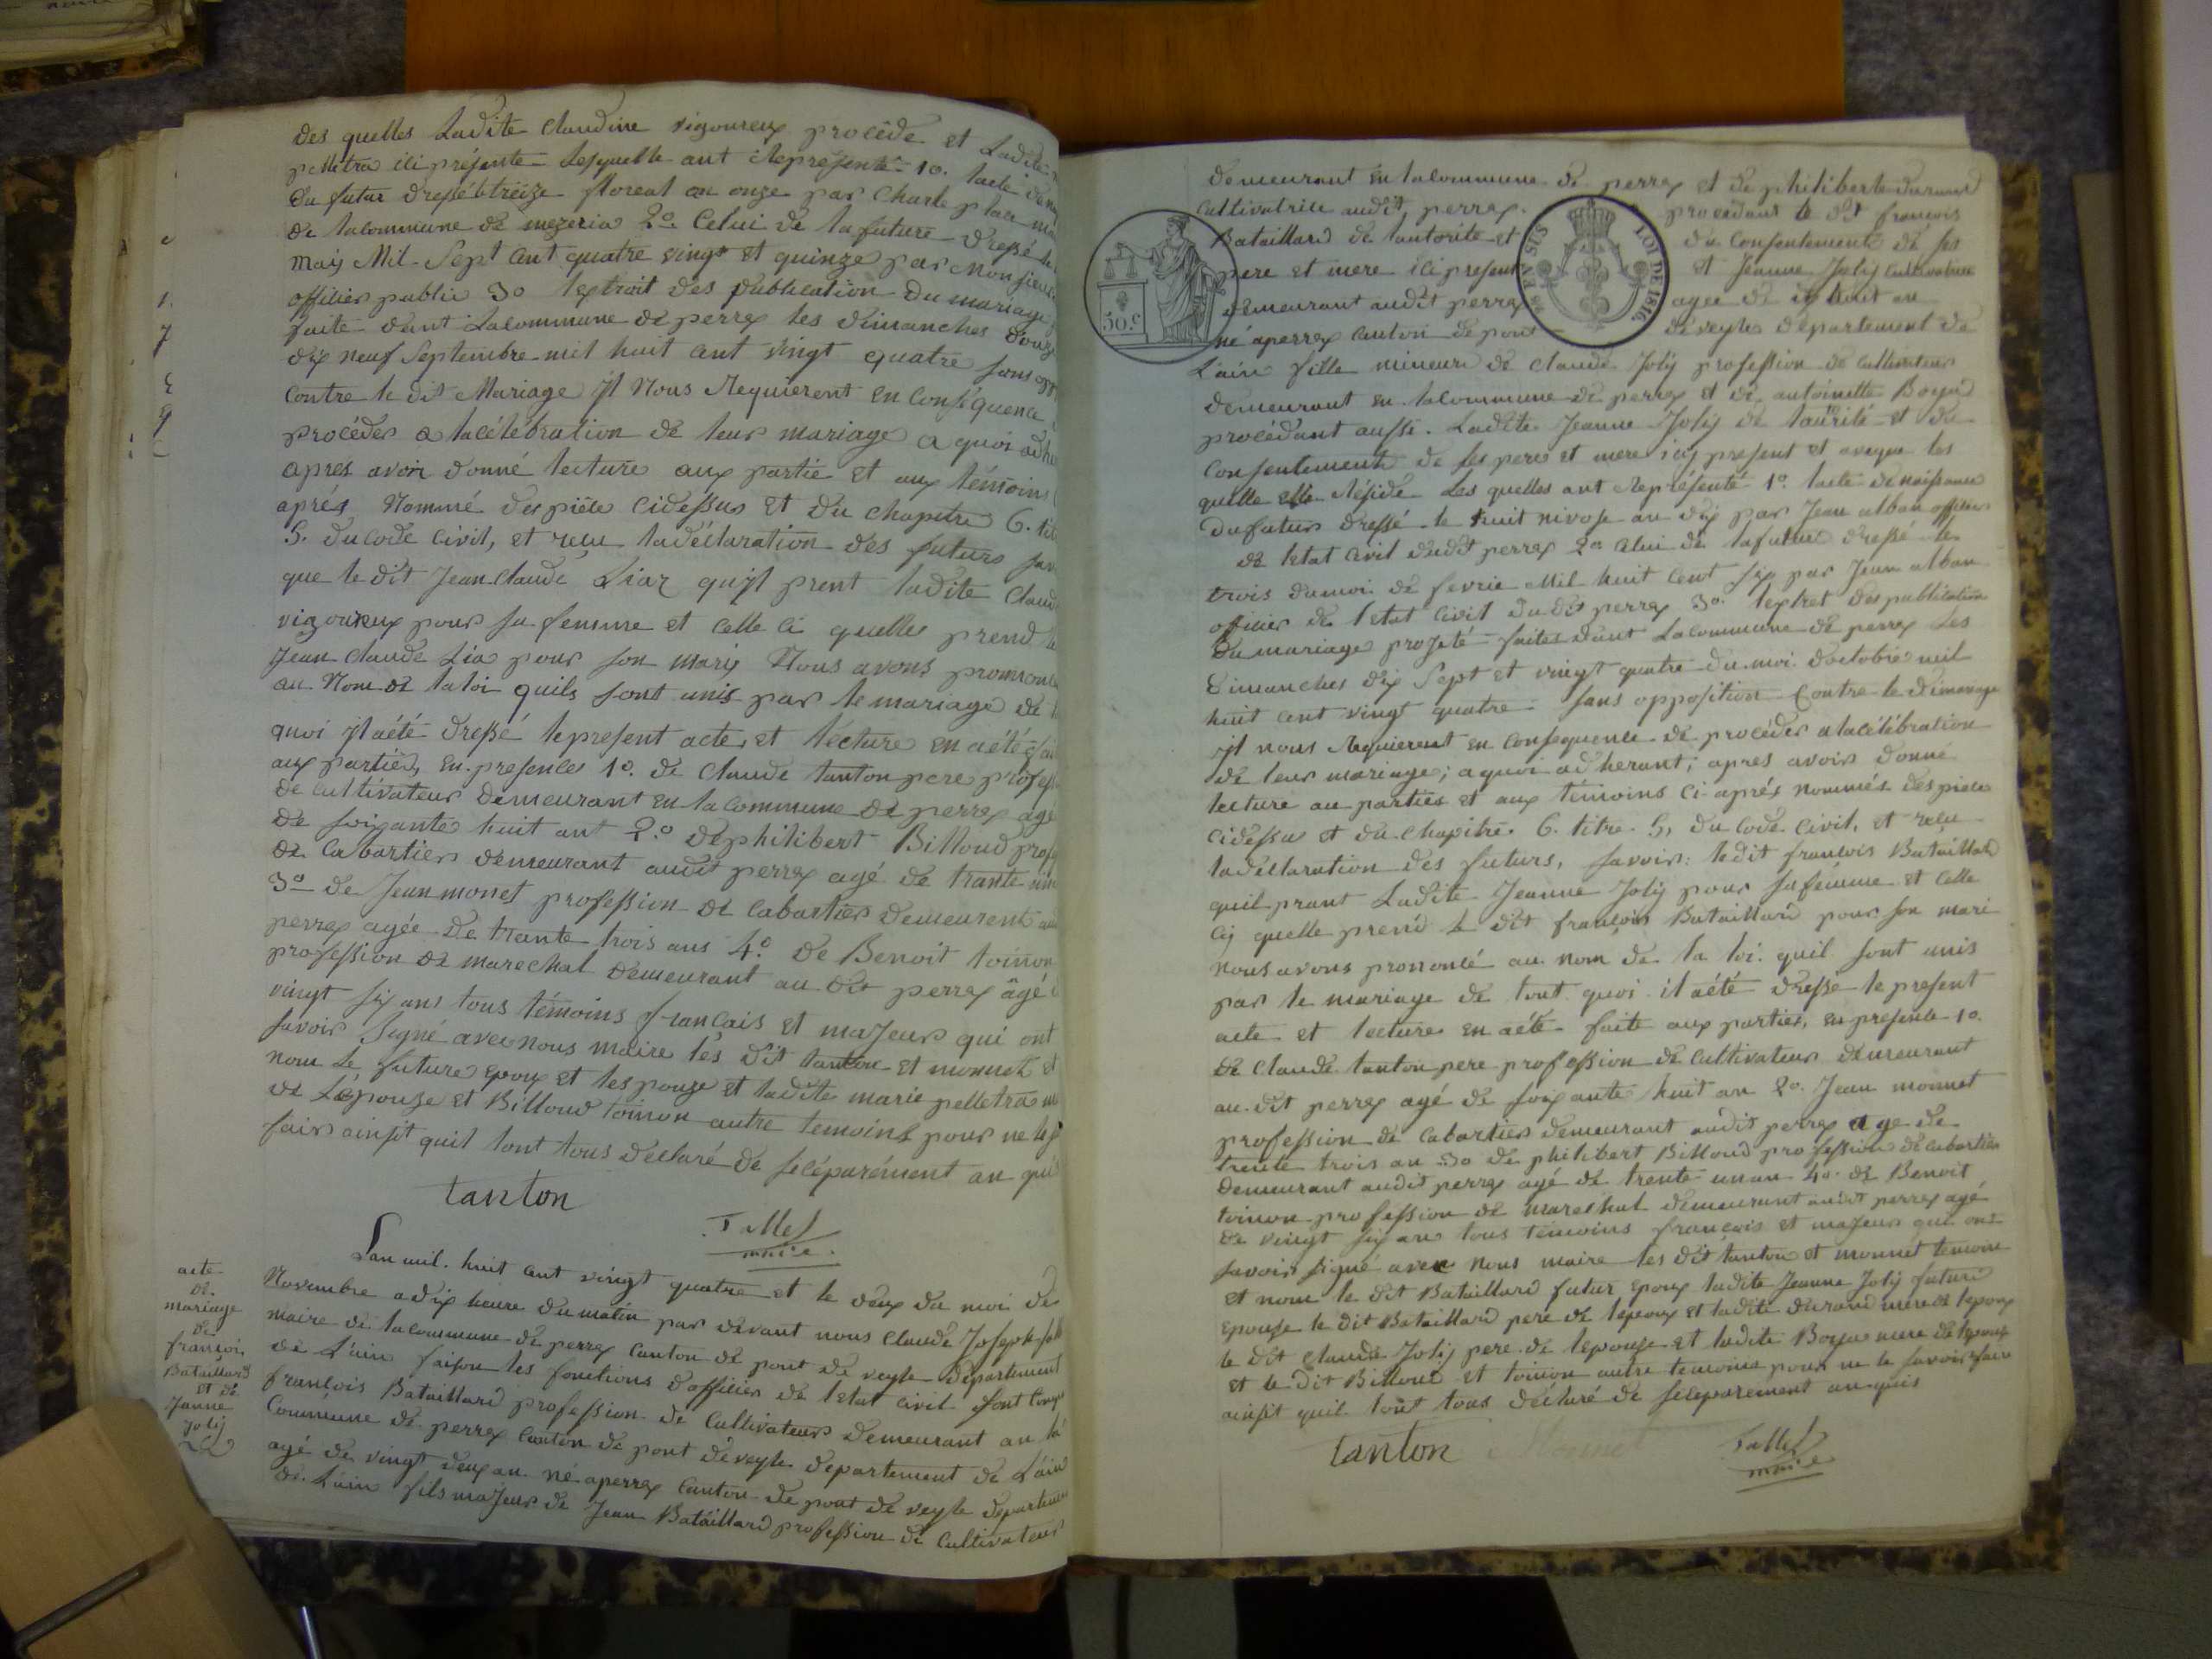 des quelles Ladite Claudine vigoureux procède et Ladite
pelletra ici présente Lesquelle ont Représenté 1o. lacte de
du futur dressé le treize floreal an onze par Charle place
de lacommune de mezeria 2o. Celui de lafuture dressé le
may Mil Sept Cent quatre vingt et quinze par Monsieur
officier public 3o lextrait des publication du mariage
faite dant Lacommune de perrex les dimanches douze
dix neuf Septembre mil huit cent vingt quatre sans
Contre le dit Mariage Jl Nous Requierent en Conséquence
procéder a lacélébration de leur mariage a quoi
apres avoir donné lecture aux partie et aux témoins
aprés Nommé des pièce cidessus et du chapitre 6.
5. du Code civil, et reçu ladéclaration des futurs
que le dit Jean Claude Liaz quijl prent ladite
vigoureux pour sa femme et celle ci quelle prend
Jean Claude Lia pour son marij Nous avons
au Nom de laloi quils sont unis par le mariage de
quoi jl aété dressé le present acte, et lécture en aété
aux partiés, en presence 1o. de Claude tanton pere
de cultivateur demeurant en lacommune de perrex agé
de soixante huit ant 2.o de philibert Billoud
de Cabartier demeurant audit perrex agé de trante
3o de Jean monet profession de Cabartier demeurent
perrex agée de trante trois ans 4.o de Benoit toinon
profession de marechal demeurant au dit perrex âgé
vingt six ans tous témoins français et maJeur qui ont
savoir Signé avec nous maire lés dit tanton et monnet et
nom Le futur epoux et lespouze et ladite marie pelletra
de Lépouze et Billoud toinon autre temoins pour ne le
fair ainsit quil lont tous déclaré de secéparément
tanton
maire.
acte
de
mariage
de
françois
Bataillard
et de
Janne
Jolij
Lan mil. huit cent vingt quatre et le deux du moi de
Novembre a dix heure du matin par devant nous Claude Joseph
maire de lacommune de perrex Canton de pont de veyle département
de Lain faison les fonctions dofficier de letat civil sont
françois Bataillard profession de Cultivateur demeurant
Commune de perrex Canton de pont de veyle departement de Lain
agé de vingt deux an né aperrex Canton de pont de veyle
de Lain fils maJeur de Jean Bataillard profession de Cultivateur
demeurant en lacommune de perrex et de philiberte durand
Cultivatrice audit perrex. procedant le dit françois
Bataillard de lautorite et du Consentement de ses
pere et mere ici present et Jeanne Jolij Cultivatrice
demeurant audit perrex agée de dix huit an
né aperrex Canton de pont de veyle département de
50.c
EN SUS
LOI DE 1816
Lain fille mineure de Claude Jolij profession de cultivateur
demeurant en lacommune de perrex et de antoinette
procédant aussi. Ladite Jeanne Jolij de laurité et du
Consentement de ses pere et mere icij present et aveque les
quelle elle Réside Lés quelles ont Représenté 1o. lacte de naissance
du futur dressé le huit nivose an dix par Jean alban officier
de letat civil dudit perrex 2o celui de lafuture dressé le
trois dumoi de fevrie Mil huit Cent six par Jean alban
officier de letat civil du dit perrex 3o. lextret des publication
du mariage projeté faites dant Lacommune de perrex Les
dimanches dix Sept et vingt quatre du moi doctobre mil
huit cent vingt quatre sans opposition Contre le dimariage
ijl nous Requierent en Consequence de procéder alacélébration
de leur mariage; aquoi adherant; apres avoir donné
lecture au parties et aux temoins Ci aprés nommés des piece
cidessu et du chapitre 6. titre 5, du Code civil, et reçu
ladéclaration des futurs, savoir: ledit françois Bataillard
quil prant Ladite Jeanne Jolij pour sa femme et Celle
Cij quelle prend le dit françois Bataillard pour son mari
nous avons prononcé au nom de la loi quil sont unis
par le mariage de tout quoi il aété dressé le present
acte et lecture en aété faite aux parties, en presence 1o.
de Claude tanton pere profession de cultivateur demeurant
au dit perrex agé de soixante huit an 2o. Jean monnet
profession de Cabartier demeurant audit perrex age de
trente trois an 3o de philibert Billoud profession de cabartier
demeurant audit perrex agé de trente un an 4o. de Benoit
toinon profession de marechal demeurant audit perrex agé
de vingt six an tous temoins français et maJeur qui ont
savoir signé avec nous maire les dit tanton et monnet temoin
et nom le dit Bataillard futur epoux ladite Jeanne Jolij future
epouse le dit Bataillard pere de lepoux et ladite durand mere de lepoux
le dit Claude Jolij pere de lepouse et ladite mere de lepouse
et le dit Billoud et toinon autre temoins pour ne le savoir faire
ainsit quil lont tous déclaré de seceparement
tanton Monnet
maire